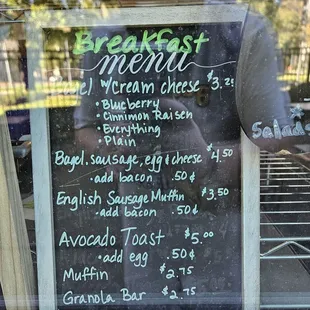 Breakfast
menu
Bagel w/cream cheese $3.25
• Blueberry
• Cinnimon Raisen
• Everything
• Plain
Bagel, sausage, egg & cheese $4.50
• add bacon .50¢
English Sausage Muffin $3.50
• add bacon .50¢
Avocado Toast $5.00
• add egg .50¢
Muffin $2.75
Granola Bar $2.75
Salads